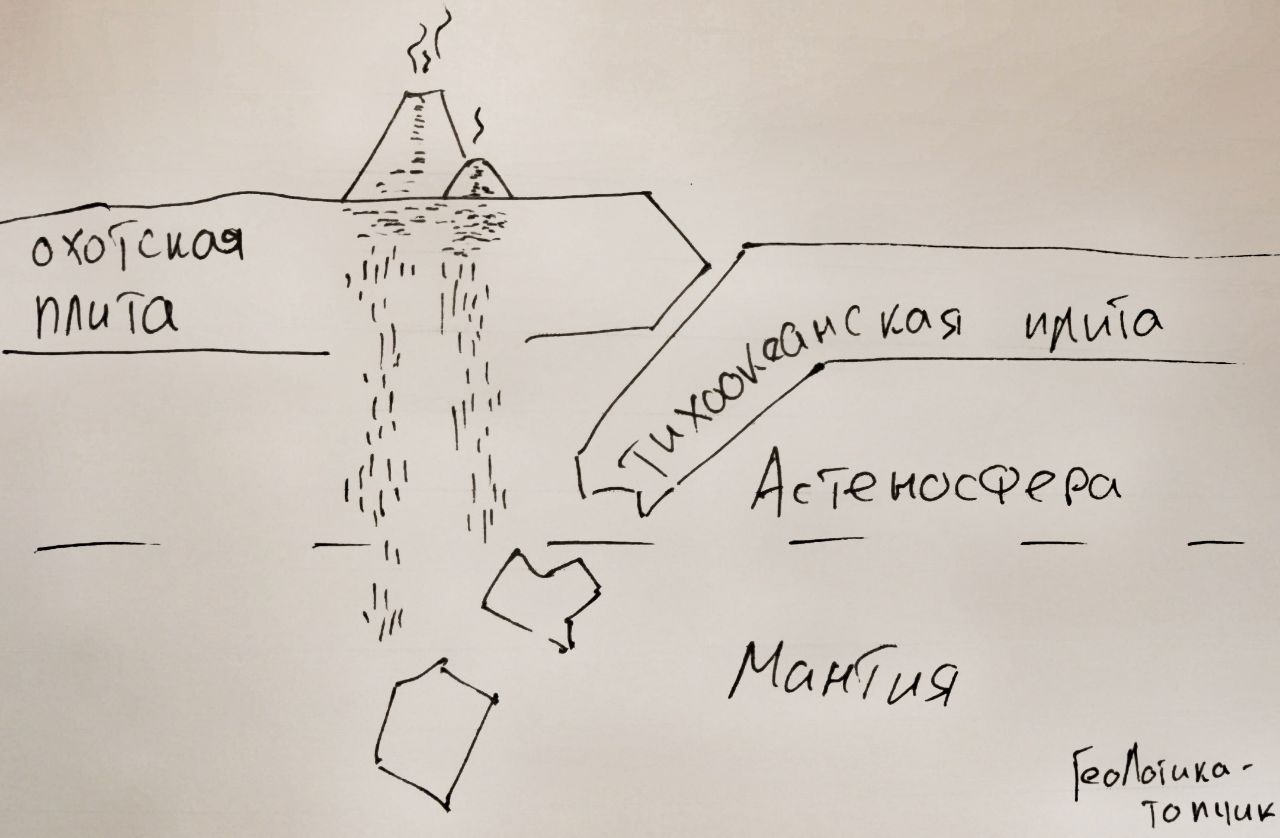 охотская
плита
Тихоокеанская плита
Астеносфера
Мантия
ГеоЛогика-
топчик